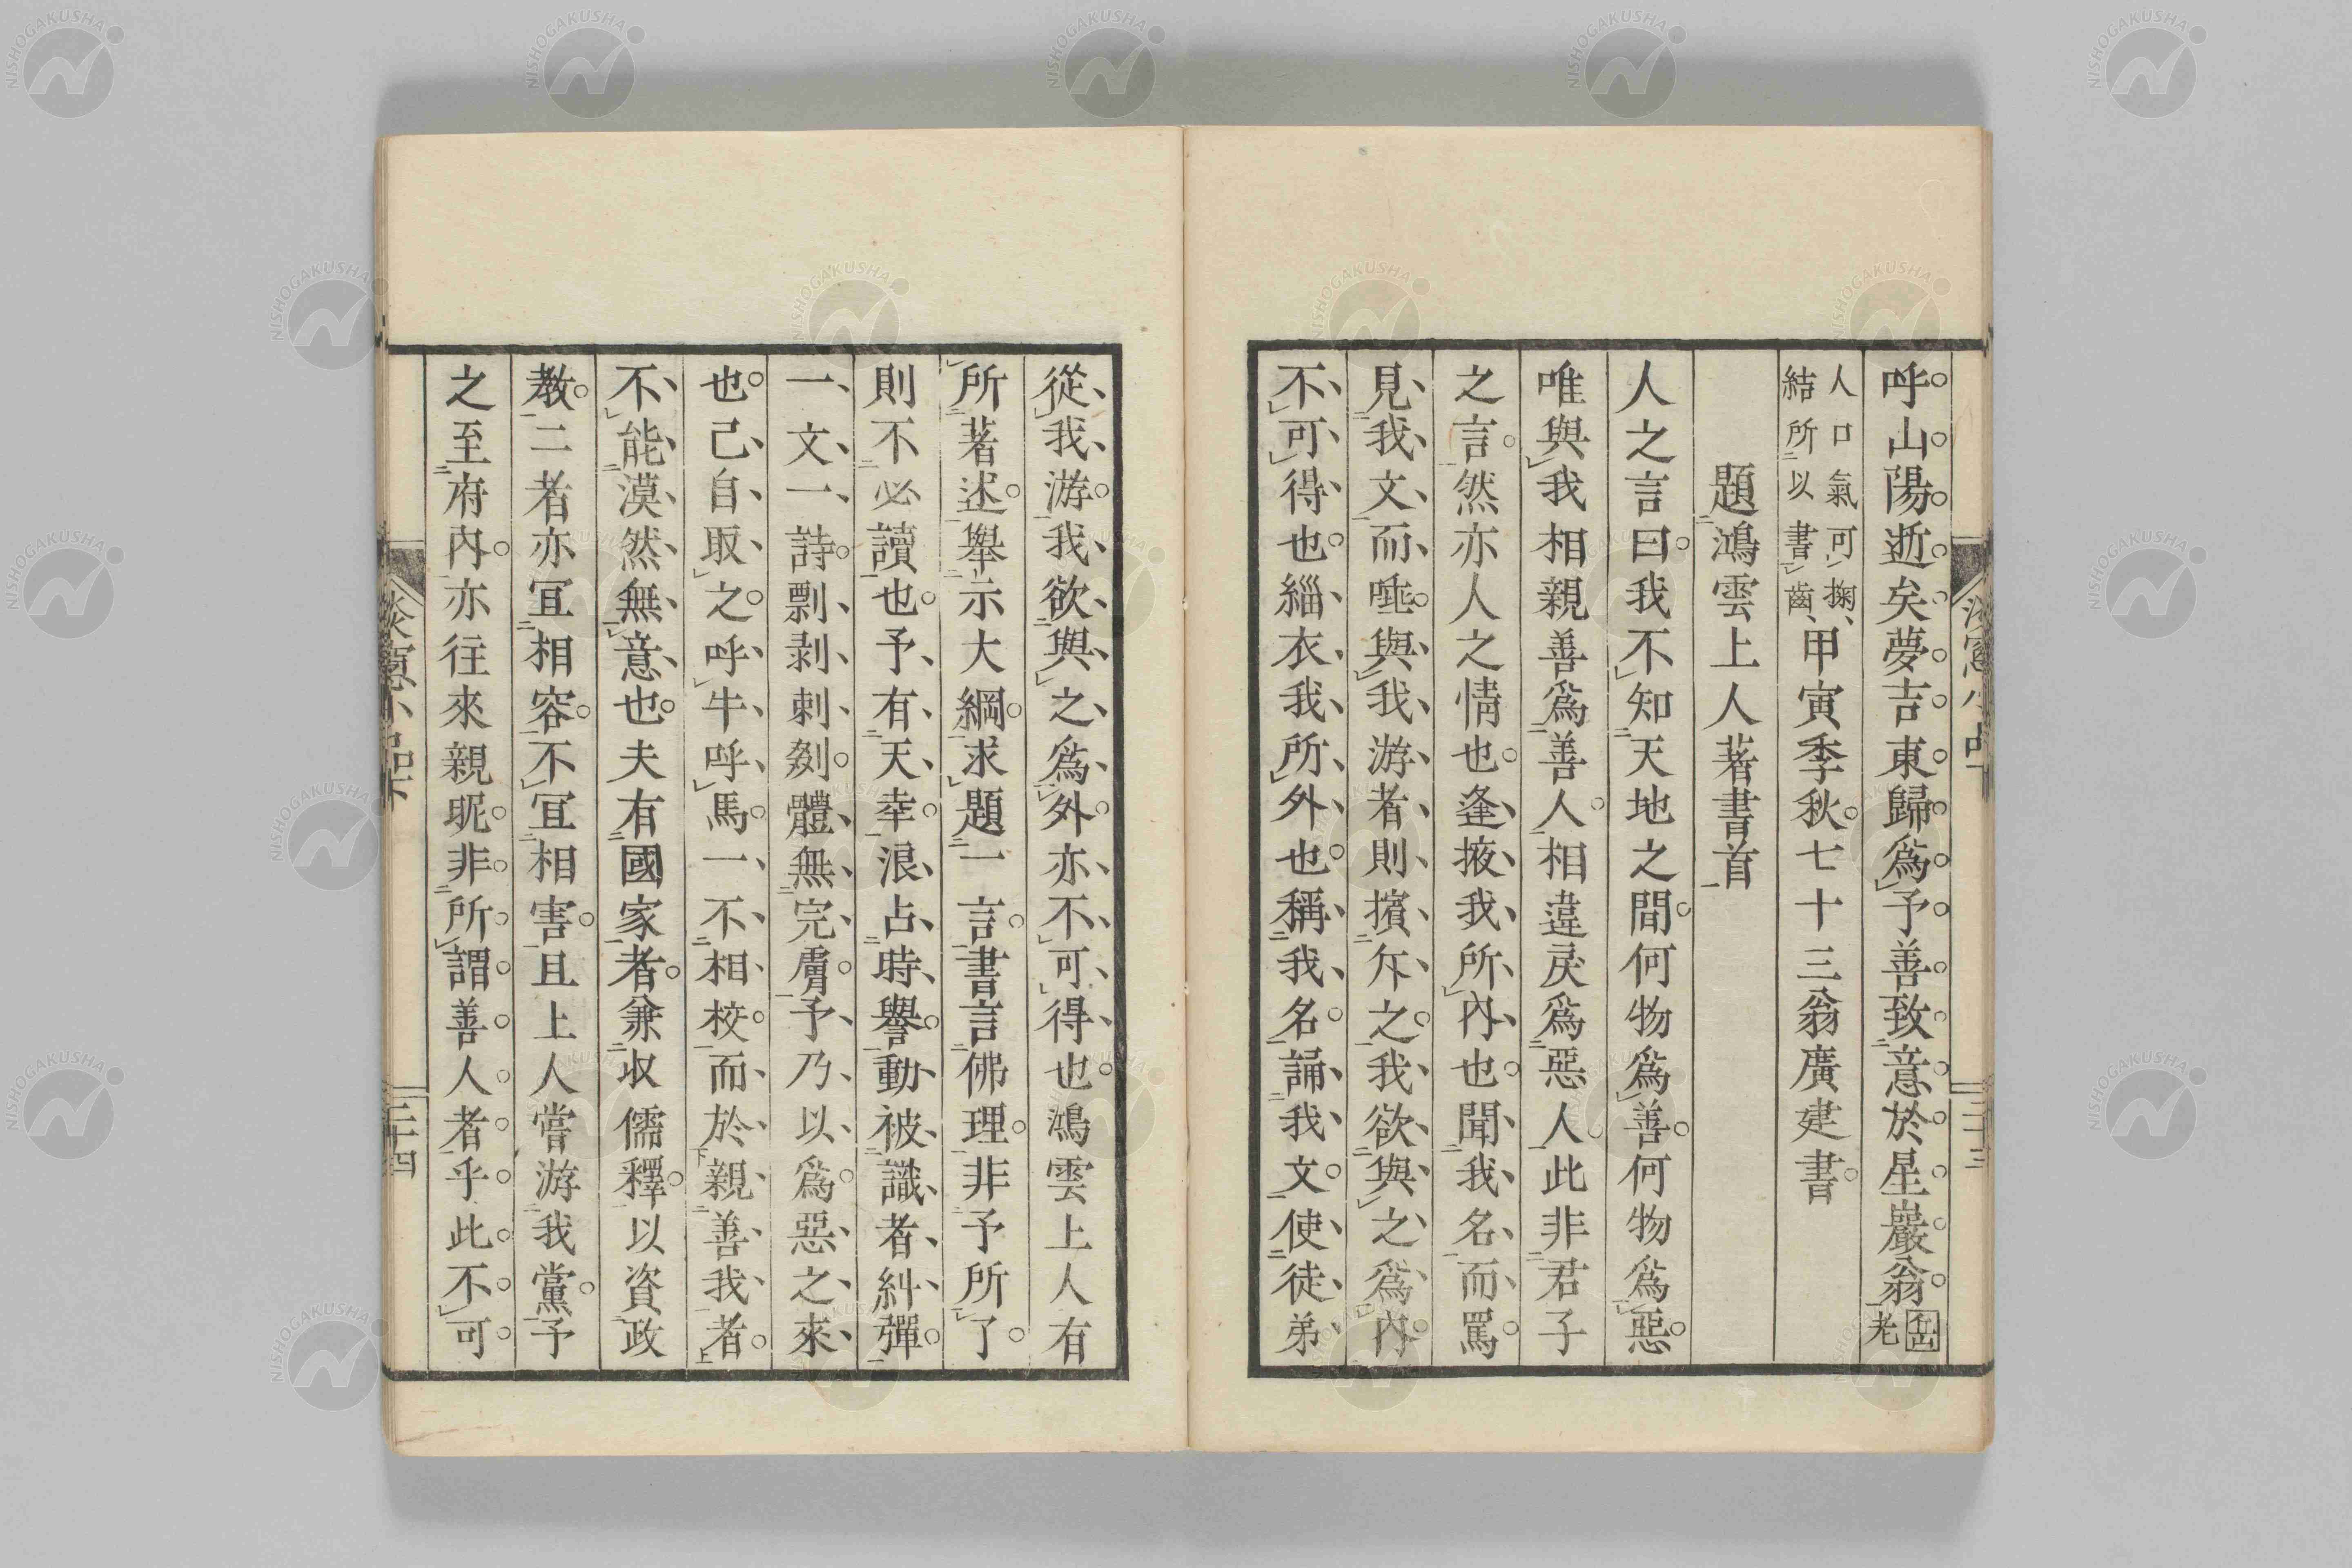 呼山陽逝矣夢吉東歸爲予善致意於星巖翁老
人口氣可掬
結所以書齒
甲寅季秋七十三翁廣建書
題鴻雲上人著書首
人之言曰我不知天地之間何物爲善何物爲惡
唯與我相親善爲善人相違戾爲惡人此非君子
之言然亦人之情也逢掖我所內也聞我名而罵
見我文而唾與我游者則擯斥之我欲與之爲內
不可得也緇衣我所外也稱我名誦我文使徒弟
從我游我欲與之爲外亦不可得也鴻雲上人有
所著述舉示大綱求題一言書言佛理非予所了
則不必讀也予有天幸浪占時譽動被識者糾彈
一文一詩剽剥刺剟體無完膚予乃以爲惡之來
也己自取之呼牛呼馬一不相校而於親善我者
不能漠然無意也夫有國家者兼収儒釋以資政
教二者亦冝相容不冝相害且上人嘗游我黨予
之至府內亦往來親昵非所謂善人者乎此不可
淡窓小品下
二十四